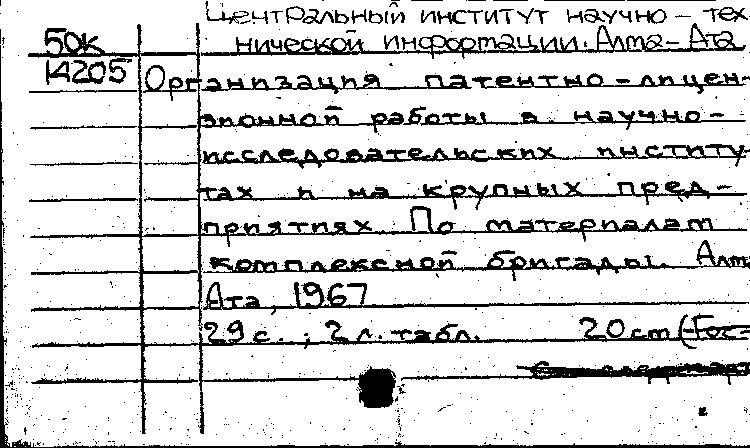 Центральный институт научно-тех
50К нической информации. Алма-Ата
14205 Организация патентно-лицен-
зионной работы в научно-
исследовательских институ
тах и на крупных пред-
приятиях По материалам
комплексной бригады. Алма
Ата, 1967
29 с.; 2 л. табл. 20 cm (Гос